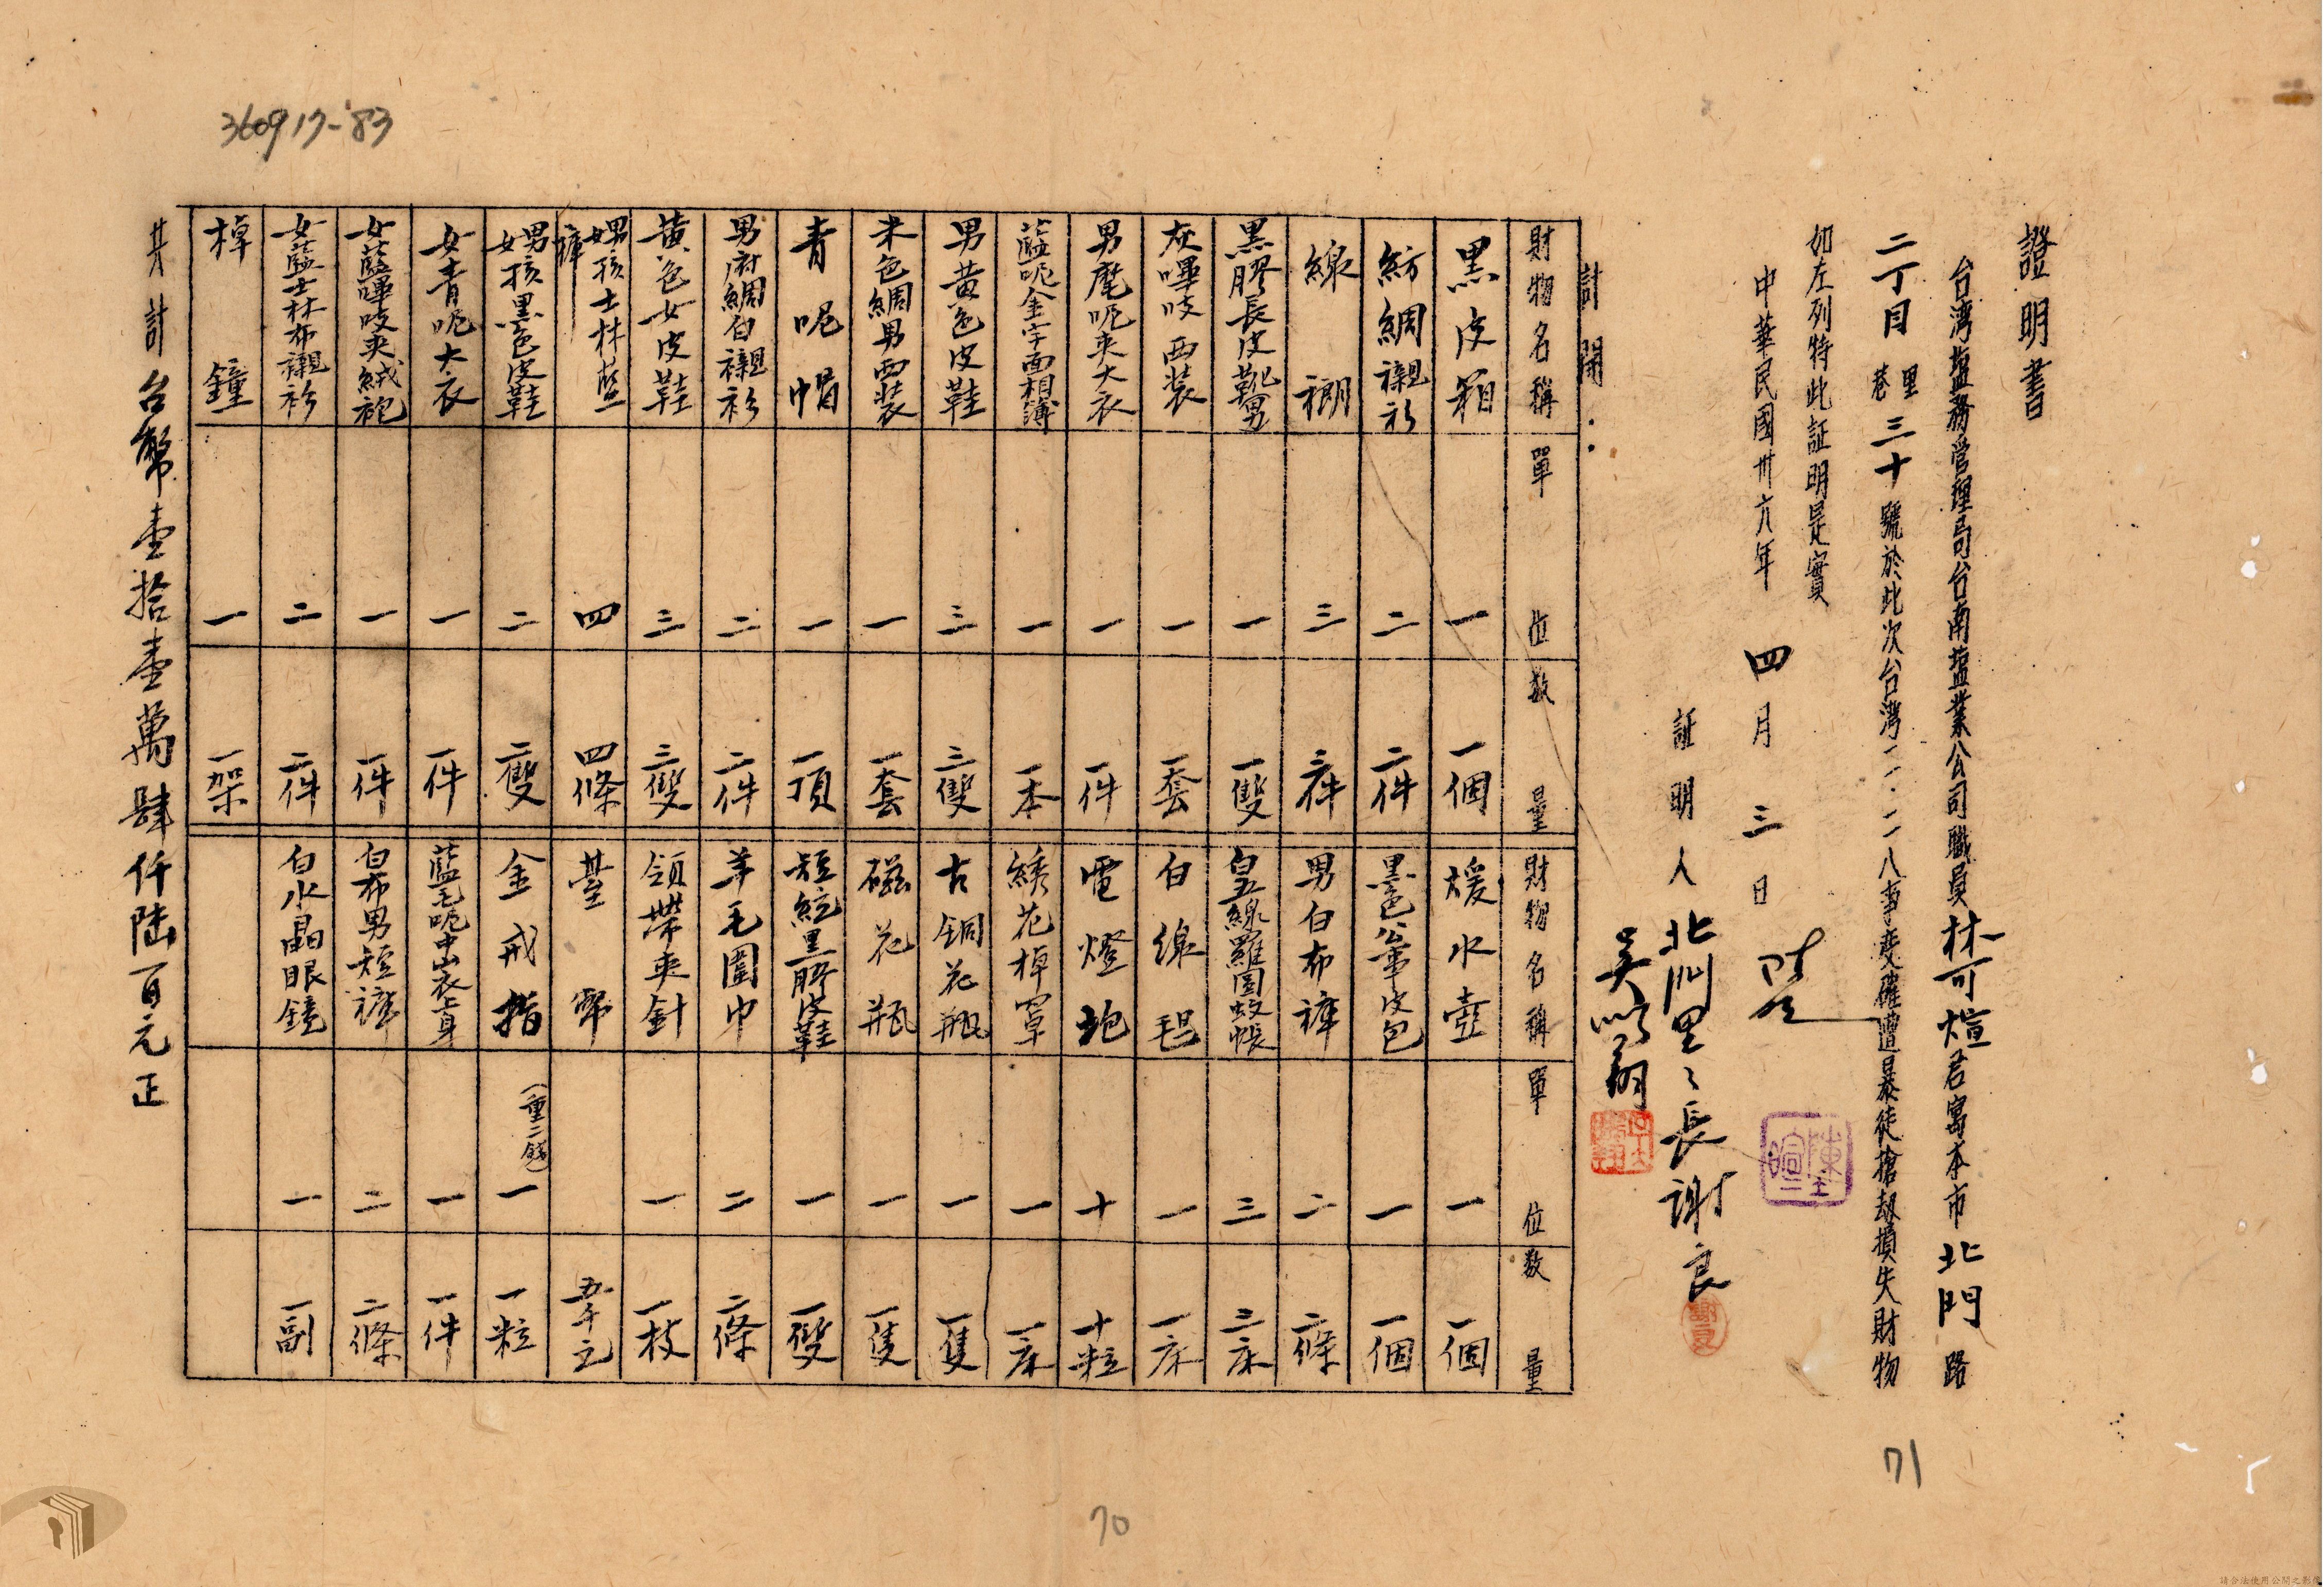 證明書
台湾塩務管理局台南塩業公司職員林可煊君寓本市北門路
二丁目里巷三十號於此次台湾二.二八事变確遭暴徒搶劫損失財物
如左列特此証明是實
中華民國卅六年四月三日
証明人北門里々長謝良
謝良
計開：
財物名稱 單位 数量 財物名稱 單位 数量
黑皮箱 一 一個 煖水壺 一 一個
紡綢襯衫 二 二件 黑色公事皮包 一 一個
線棚 三 三件 男白布褲 二 二條
黑膠長皮靴男 一 一雙 皇五線羅圓蚊帳 三 三床
灰嗶吱西装 一 一套 白線毯 一 一床
男麾呢夹大衣 一 一件 電燈炮 十 十粒
藍呢金字面相簿 一 一本 綉花棹罩 一 一床
男黄色皮鞋 三 三雙 古銅花瓶 一 一隻
米色綢男西装 一 一套 磁花瓶 一 一隻
青呢帽 一 一頂 短統黑膠皮鞋 一 一雙
男府綢白襯衫 二 二件 羊毛圍巾 二 二條
黄色女皮鞋 三 三雙 領帶夹針 一 一枝
男女孩士林藍褲 四 四條 臺幣 五千元
男女孩黑色皮鞋 二 二雙 金戒指 (重二錢) 一 一粒
女青呢大衣 一 一件 藍毛呢中山衣上身 一 一件
女藍嗶吱夹絨袍 一 一件 白布男短褲 二 二條
女藍士林布襯衫 二 二件 白水晶眼鏡 一 一副
棹鐘 一 一架
共計台幣壹拾壹萬肆仟陆百元正
360917-83
71
70
請合法使用公開之影像